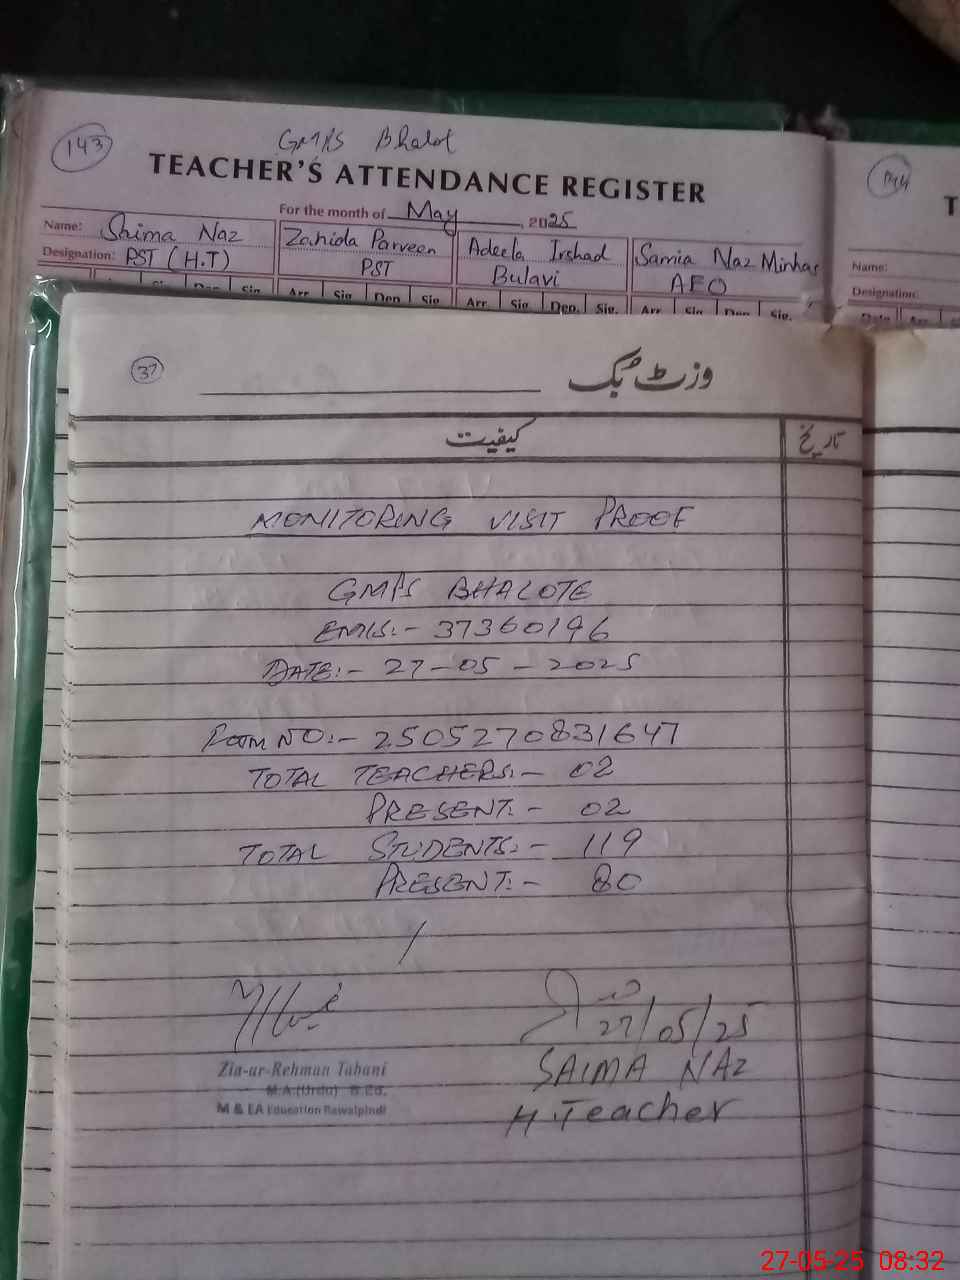 143
GMPS Bhalot
TEACHER'S ATTENDANCE REGISTER
For the month of May, 2025
Name: Shima Naz Zahida Parveen Adeela Irshad Samia Naz Minhas
Designation: PST (H.T) PST Bulavi AEO
Sig. Dep. Sig. Arr. Sig. Dep. Sig. Arr. Sig. Dep. Sig. Arr. Sig. Dep. Sig.
144
T
Name:
Designation:
Date Arr.
37
وزٹ بک
کیفیت تاریخ
MONITORING VISIT PROOF
GMPS BHALOTE
EMIS:- 37360196
DATE:- 27-05-2025
ROOM NO:- 2505270831647
TOTAL TEACHERS:- 02
PRESENT:- 02
TOTAL STUDENTS:- 119
PRESENT:- 80
27/05/25
Zia-ur-Rehman Tabani
M.A.(Urdu) B.Ed.
M & EA Education Rawalpindi
SAIMA NAZ
H.Teacher
27-05-25 08:32